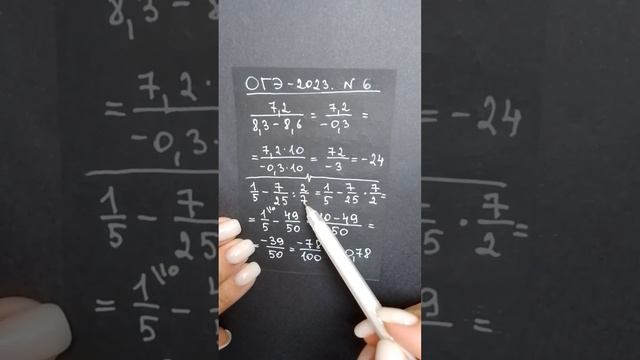 ОГЭ-2023. N 6
7,2/8,3-8,6 = 7,2/-0,3 =
= 7,2·10/-0,3·10 = 72/-3 = -24
1/5 - 7/25 : 2/7 = 1/5 - 7/25 · 7/2 =
= 1\10/5 - 49/50 = 10-49/50 =
= -39/50 = -78/100 0,78